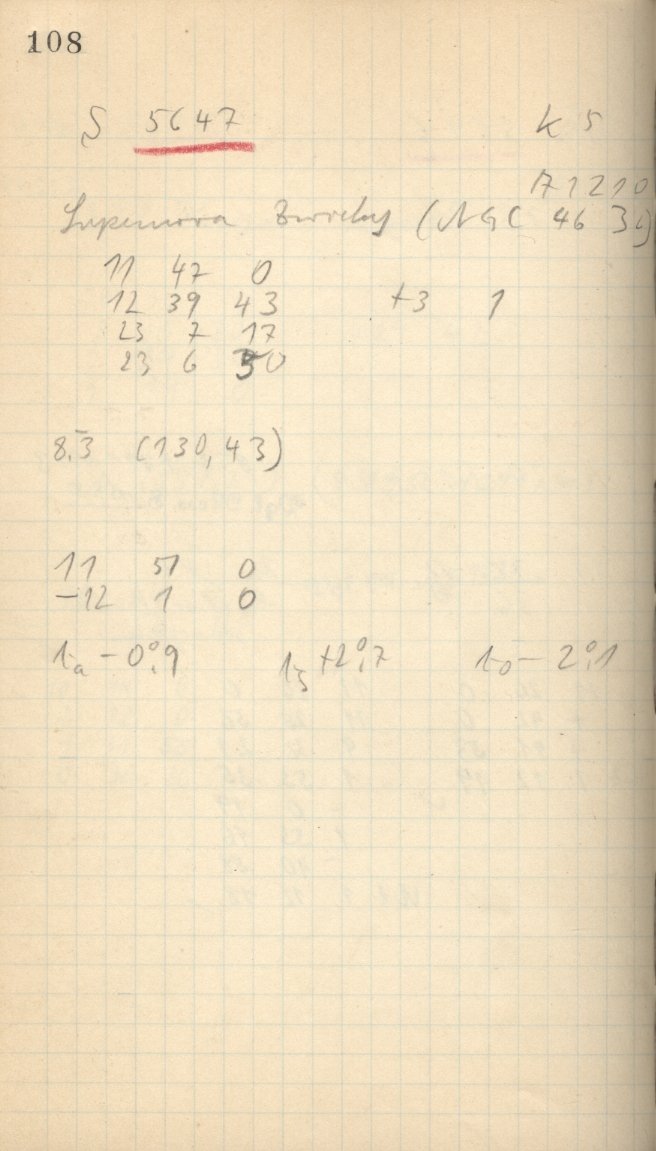 108
S 5647 K 5
A 1210
Supernova Zwicky (NGC 46 36)
11 47 0
12 39 43 +3 1
23 7 17
23 6 50
8.3 (130,43)
11 51 0
-12 1 0
ta - 0°.9 t5 +2°.7 to - 2°.1